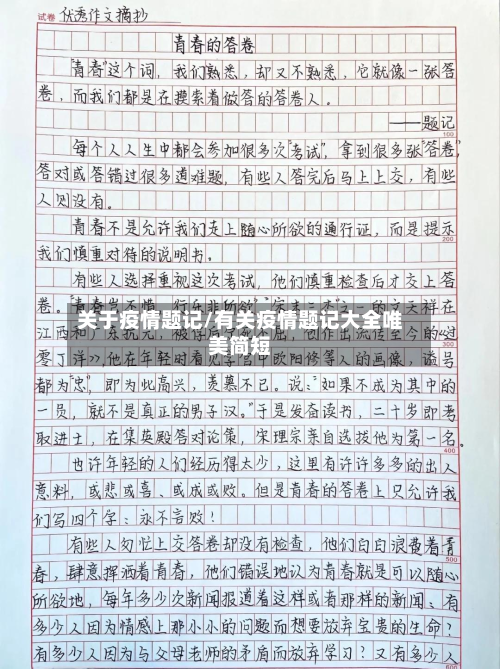 试卷 优秀作文摘抄
青春的答卷
"青春"这个词，我们熟悉，却又不熟悉，它就像一张答
卷，而我们都是在摸索着做答的答卷人。
——题记
100
每个人人生中都会参加很多次"考试"，拿到很多张"答卷"，
答对或答错过很多道难题，有些人答完后马上上交，有些
人则没有。
青春不是允许我们走上随心所欲的通行证，而是提示
200
我们慎重对待的说明书。
有些人选择重视这次考试，他们慎重检查后才交上答
卷。
关于疫情题记/有关疫情题记大全唯
美简短
零丁洋》，他在年轻时看 中欧阳修等人的画像，谥号
都为"忠"，即为此高兴，羡慕不已。说："如果不成为其中的
一员，就不是真正的男子汉。"于是发奋读书，二十岁即考
取进士，在集英殿答对论策，宋理宗亲自选拔他为第一名。
400
也许年轻的人们经历得太少，这里有许许多多的出人
意料，或悲或喜、或成或败。但是青春的答卷上只允许我
们写四个字：永不言败！
有些人匆忙上交答卷却没有检查，他们白白浪费着青
500
春，肆意挥洒着青春，他们错误地认为青春就是可以随心
所欲地，每年多少次新闻报道着这样或者那样的新闻：有
多少人因为情感上那小小的问题而想要放弃宝贵的生命？
600
有多少人因为与父母老师的矛盾而放弃学习？又有多少人